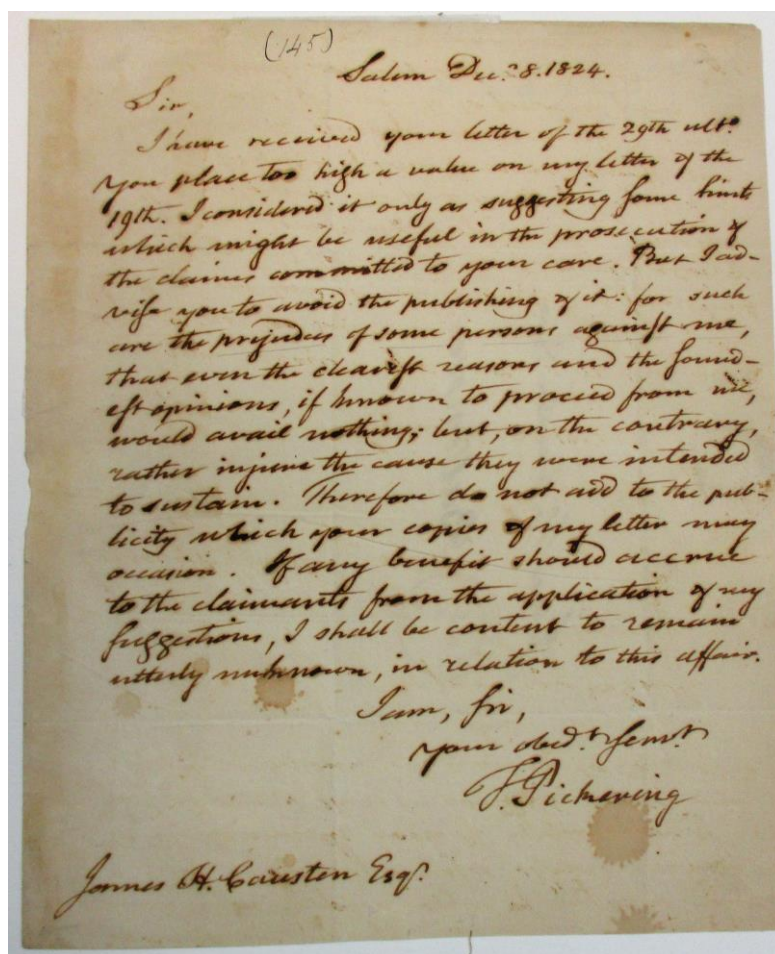 (145)
Salem Decr. 8. 1824.
Sir,
I have received your letter of the 29th ulto.
You place too high a value on my letter of the
19th. I considered it only as suggesting some hints
which might be useful in the prosecution of
the claims committed to your care. But I ad-
vise you to avoid the publishing of it: for such
are the prejudices of some persons against me,
that even the clearest reasons and the sound-
est opinions, if known to proceed from me,
would avail nothing; but, on the contrary,
rather injure the cause they were intended
to sustain. Therefore do not add to the pub-
licity which your copies of my letter may
occasion. If any benefit should accrue
to the claimants from the application of my
suggestions, I shall be content to remain
utterly unknown, in relation to this affair.
I am, sir,
your obedt. servt.
T. Pickering
James H. Causten Esqr.